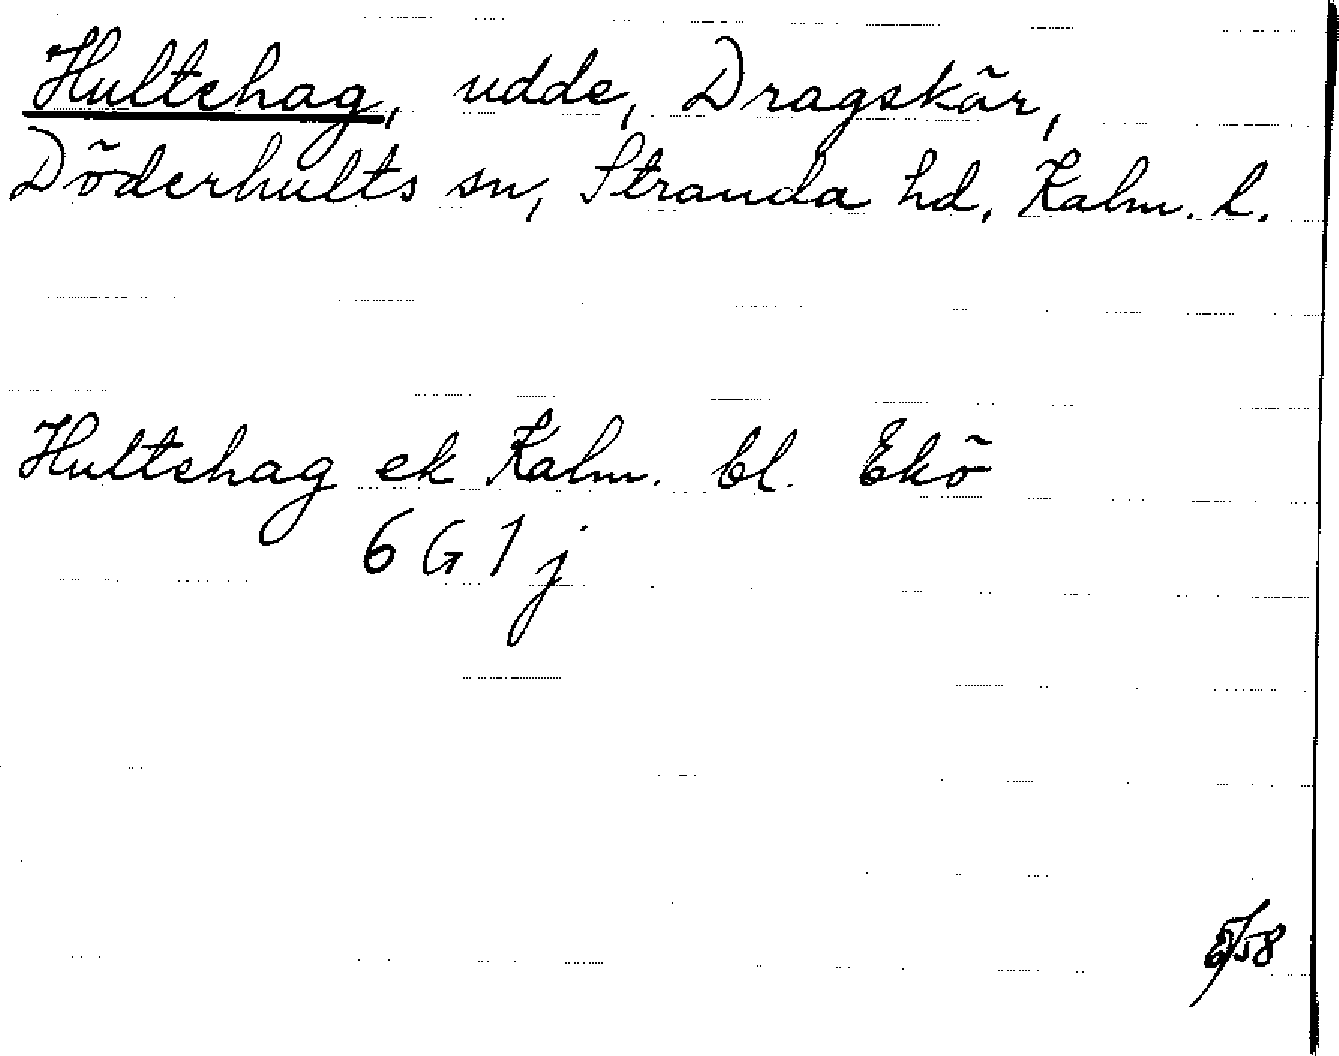 Hultehag, udde, Dragskär,
Döderhults sn, Stranda hd, Kalm. l.
Hultehag ek Kalm. bl. Ekö
6 G 1 j